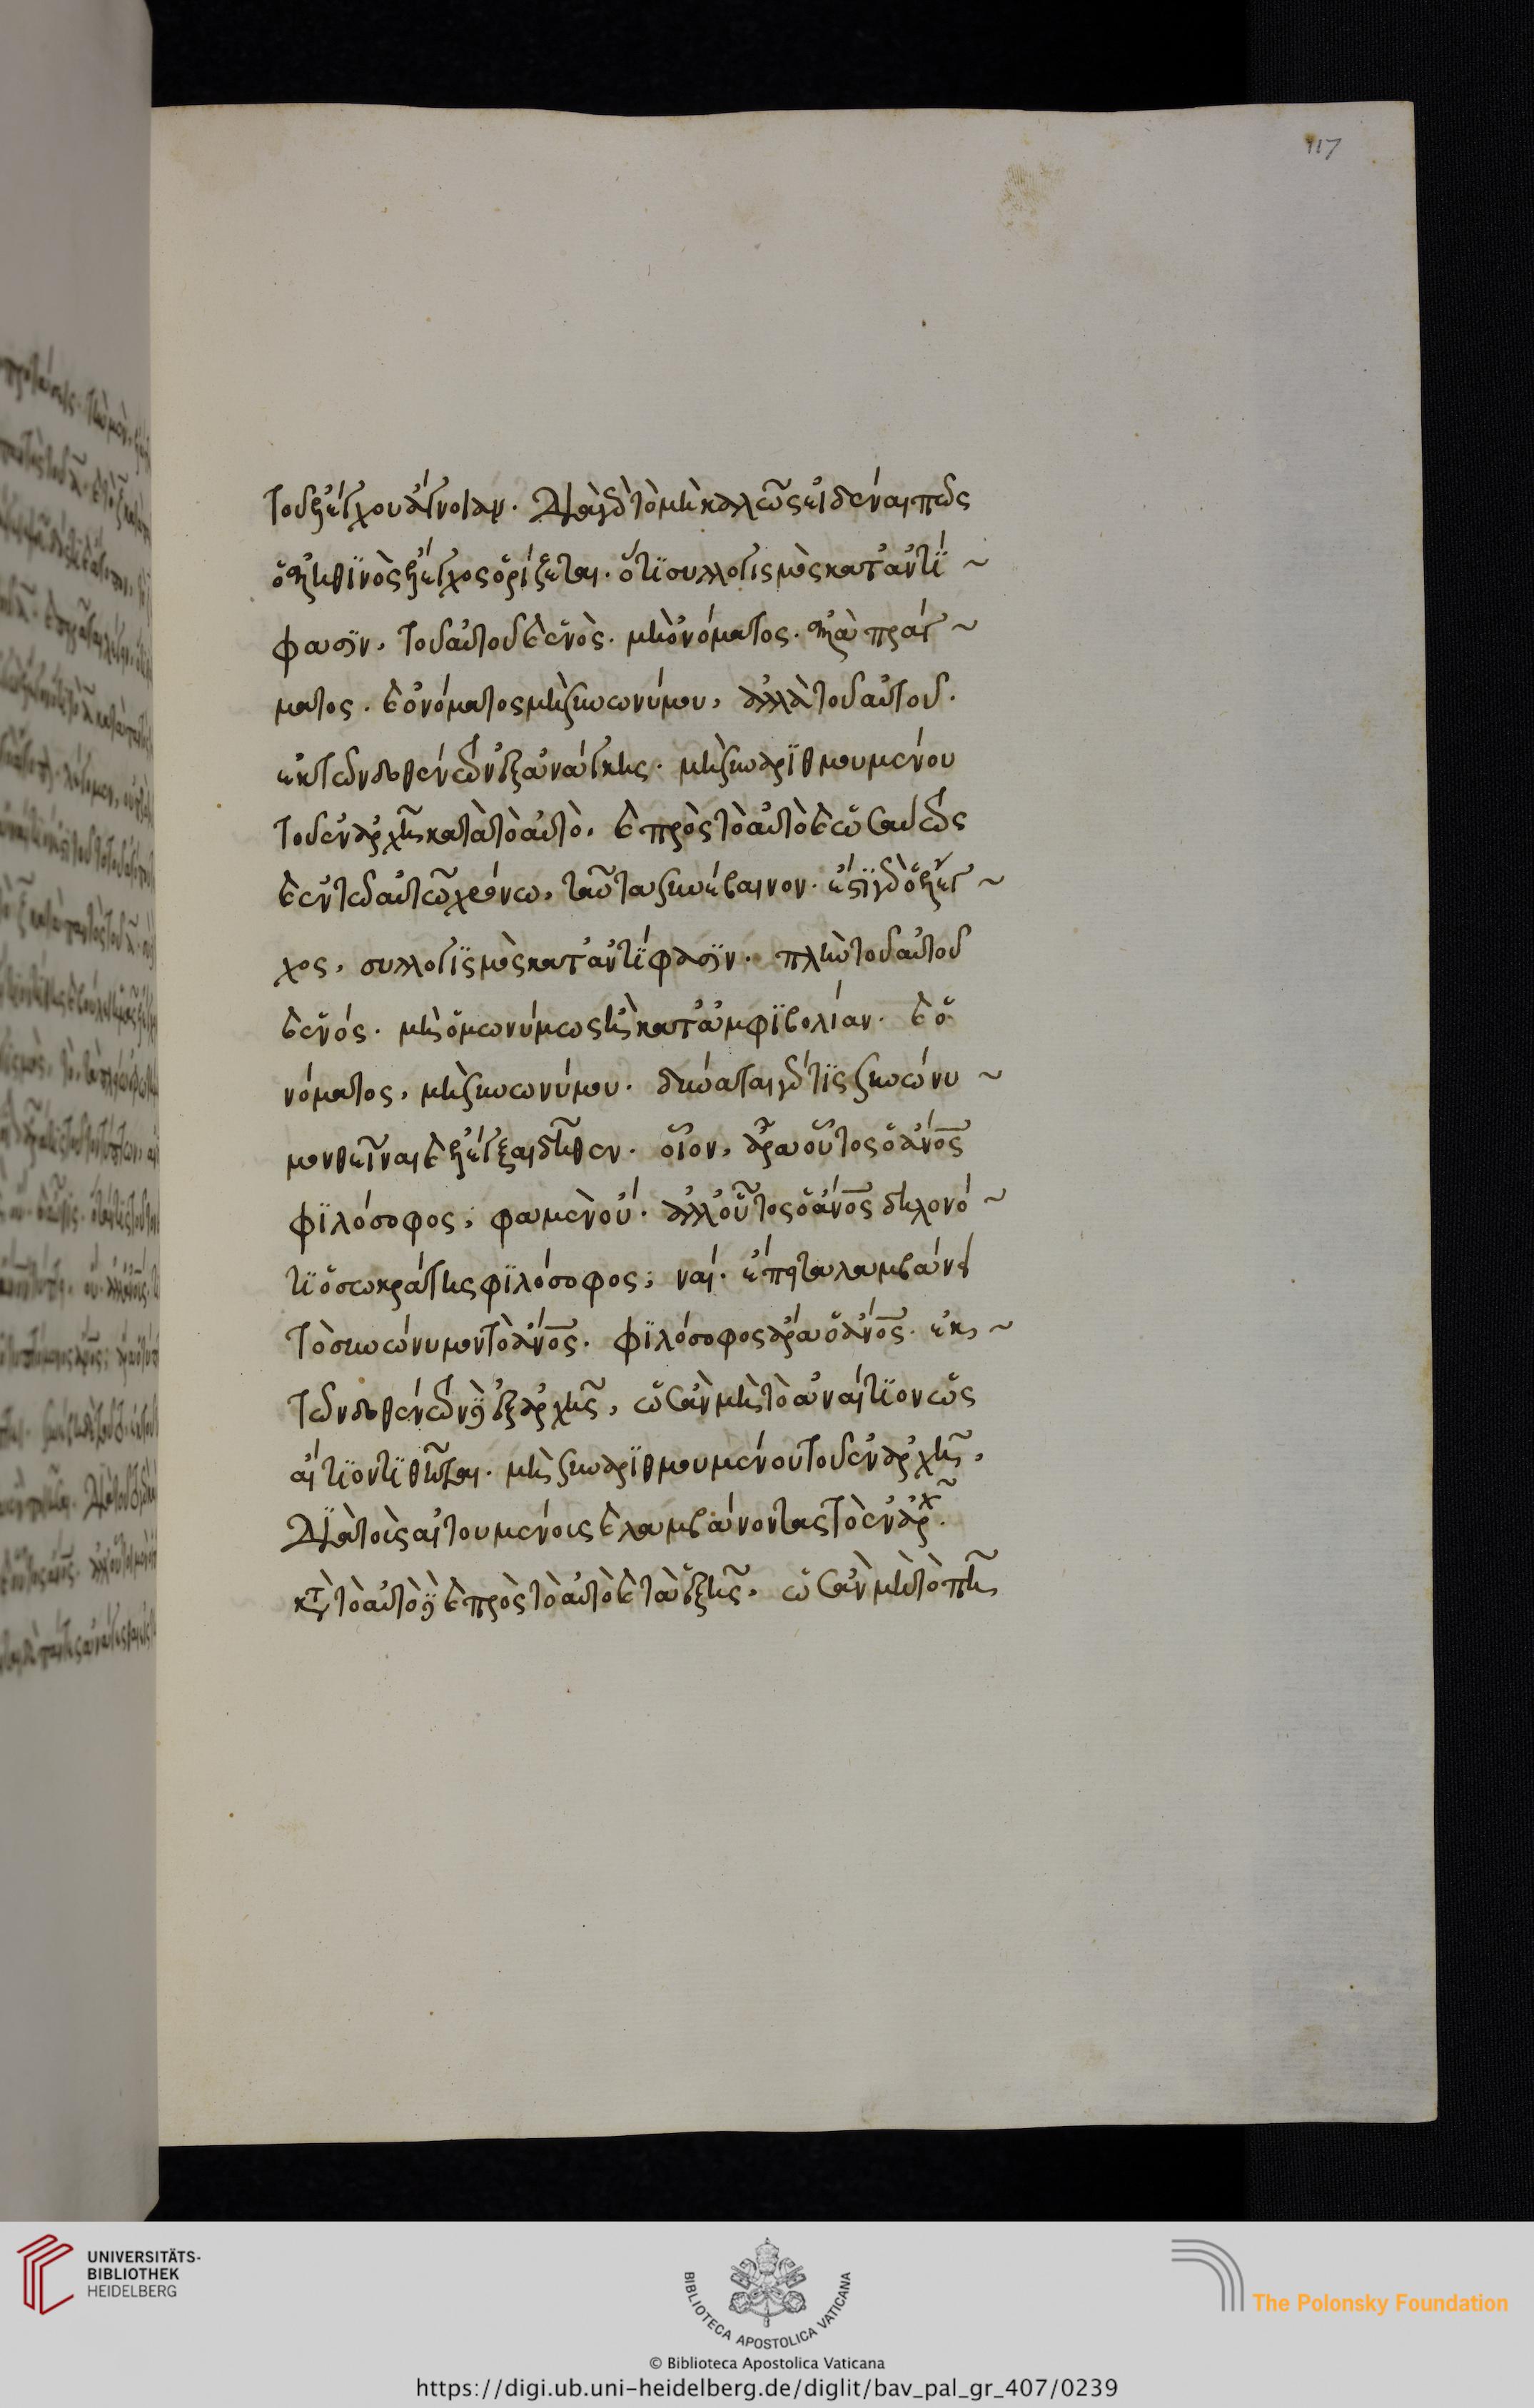 117
τοῦ ἐλέγχου ἄγνοιαν. διὰ γὰρ τὸ μὴ καλῶς εἰδέναι πῶς
ὁ ἀληθινὸς ἔλεγχος ὁρίζεται. ὅτι συλλογισμὸς κατ' ἀντί
φασιν, τοῦ αὐτοῦ καὶ ἑνὸς. μὴ ὀνόματος. ἀλλὰ πράγ
ματος. καὶ ὀνόματος μὴ συνωνύμου, ἀλλὰ τοῦ αὐτοῦ.
ἐκ τῶν δοθέντων ἐξ ἀνάγκης. μὴ συναριθμουμένου
τοῦ ἐν ἀρχῇ κατὰ τὸ αὐτὸ, καὶ πρὸς τὸ αὐτὸ καὶ ὡσαύτως
καὶ ἐν τῷ αὐτῷ χρόνω, ταῦτα συνέβαινον. ἔστι γὰρ ὁ ἔλεγ
χος, συλλογισμὸς κατ' ἀντίφασιν. πλὴν τοῦ αὐτοῦ
καὶ ἑνός. μὴ ὁμωνύμως ἢ κατ' ἀμφιβολίαν. καὶ ὀ
νόματος, μὴ συνωνύμου. δύναται γάρ τις συνώνυ
μον θεῖναι καὶ ἐλέγξαι δῆθεν. οἷον, ἆρα οὗτος ὁ ἄνος
φιλόσοφος; φαμὲν οὔ. ἀλλ' οὗτος ὁ ἄνος δηλονό
τι ὁ σωκράτης φιλόσοφος; ναί. εἶτα μεταλαμβάνει
τὸ συνώνυμον τὸ ἄνος. φιλόσοφος ἄρα ὁ ἄνος. ἐκ
τῶν δοθέντων ἐξ ἀρχῆς, ὡς ἂν μὴ τὸ ἀναίτιον ὡς
αἴτιον τιθῆται. μὴ συναριθμουμένου τοῦ ἐν ἀρχῇ,
διὰ τοὺς αἰτουμένους καὶ λαμβάνοντας τὸ ἐν ἀρχ.
κατὰ τὸ αὐτὸ καὶ πρὸς τὸ αὐτὸ καὶ τὰ ἑξῆς. ὡς ἂν μὴ τὸ πῆ
UNIVERSITÄTS-
BIBLIOTHEK
HEIDELBERG
BIBLIOTECA APOSTOLICA VATICANA
The Polonsky Foundation
© Biblioteca Apostolica Vaticana
https://digi.ub.uni-heidelberg.de/diglit/bav_pal_gr_407/0239